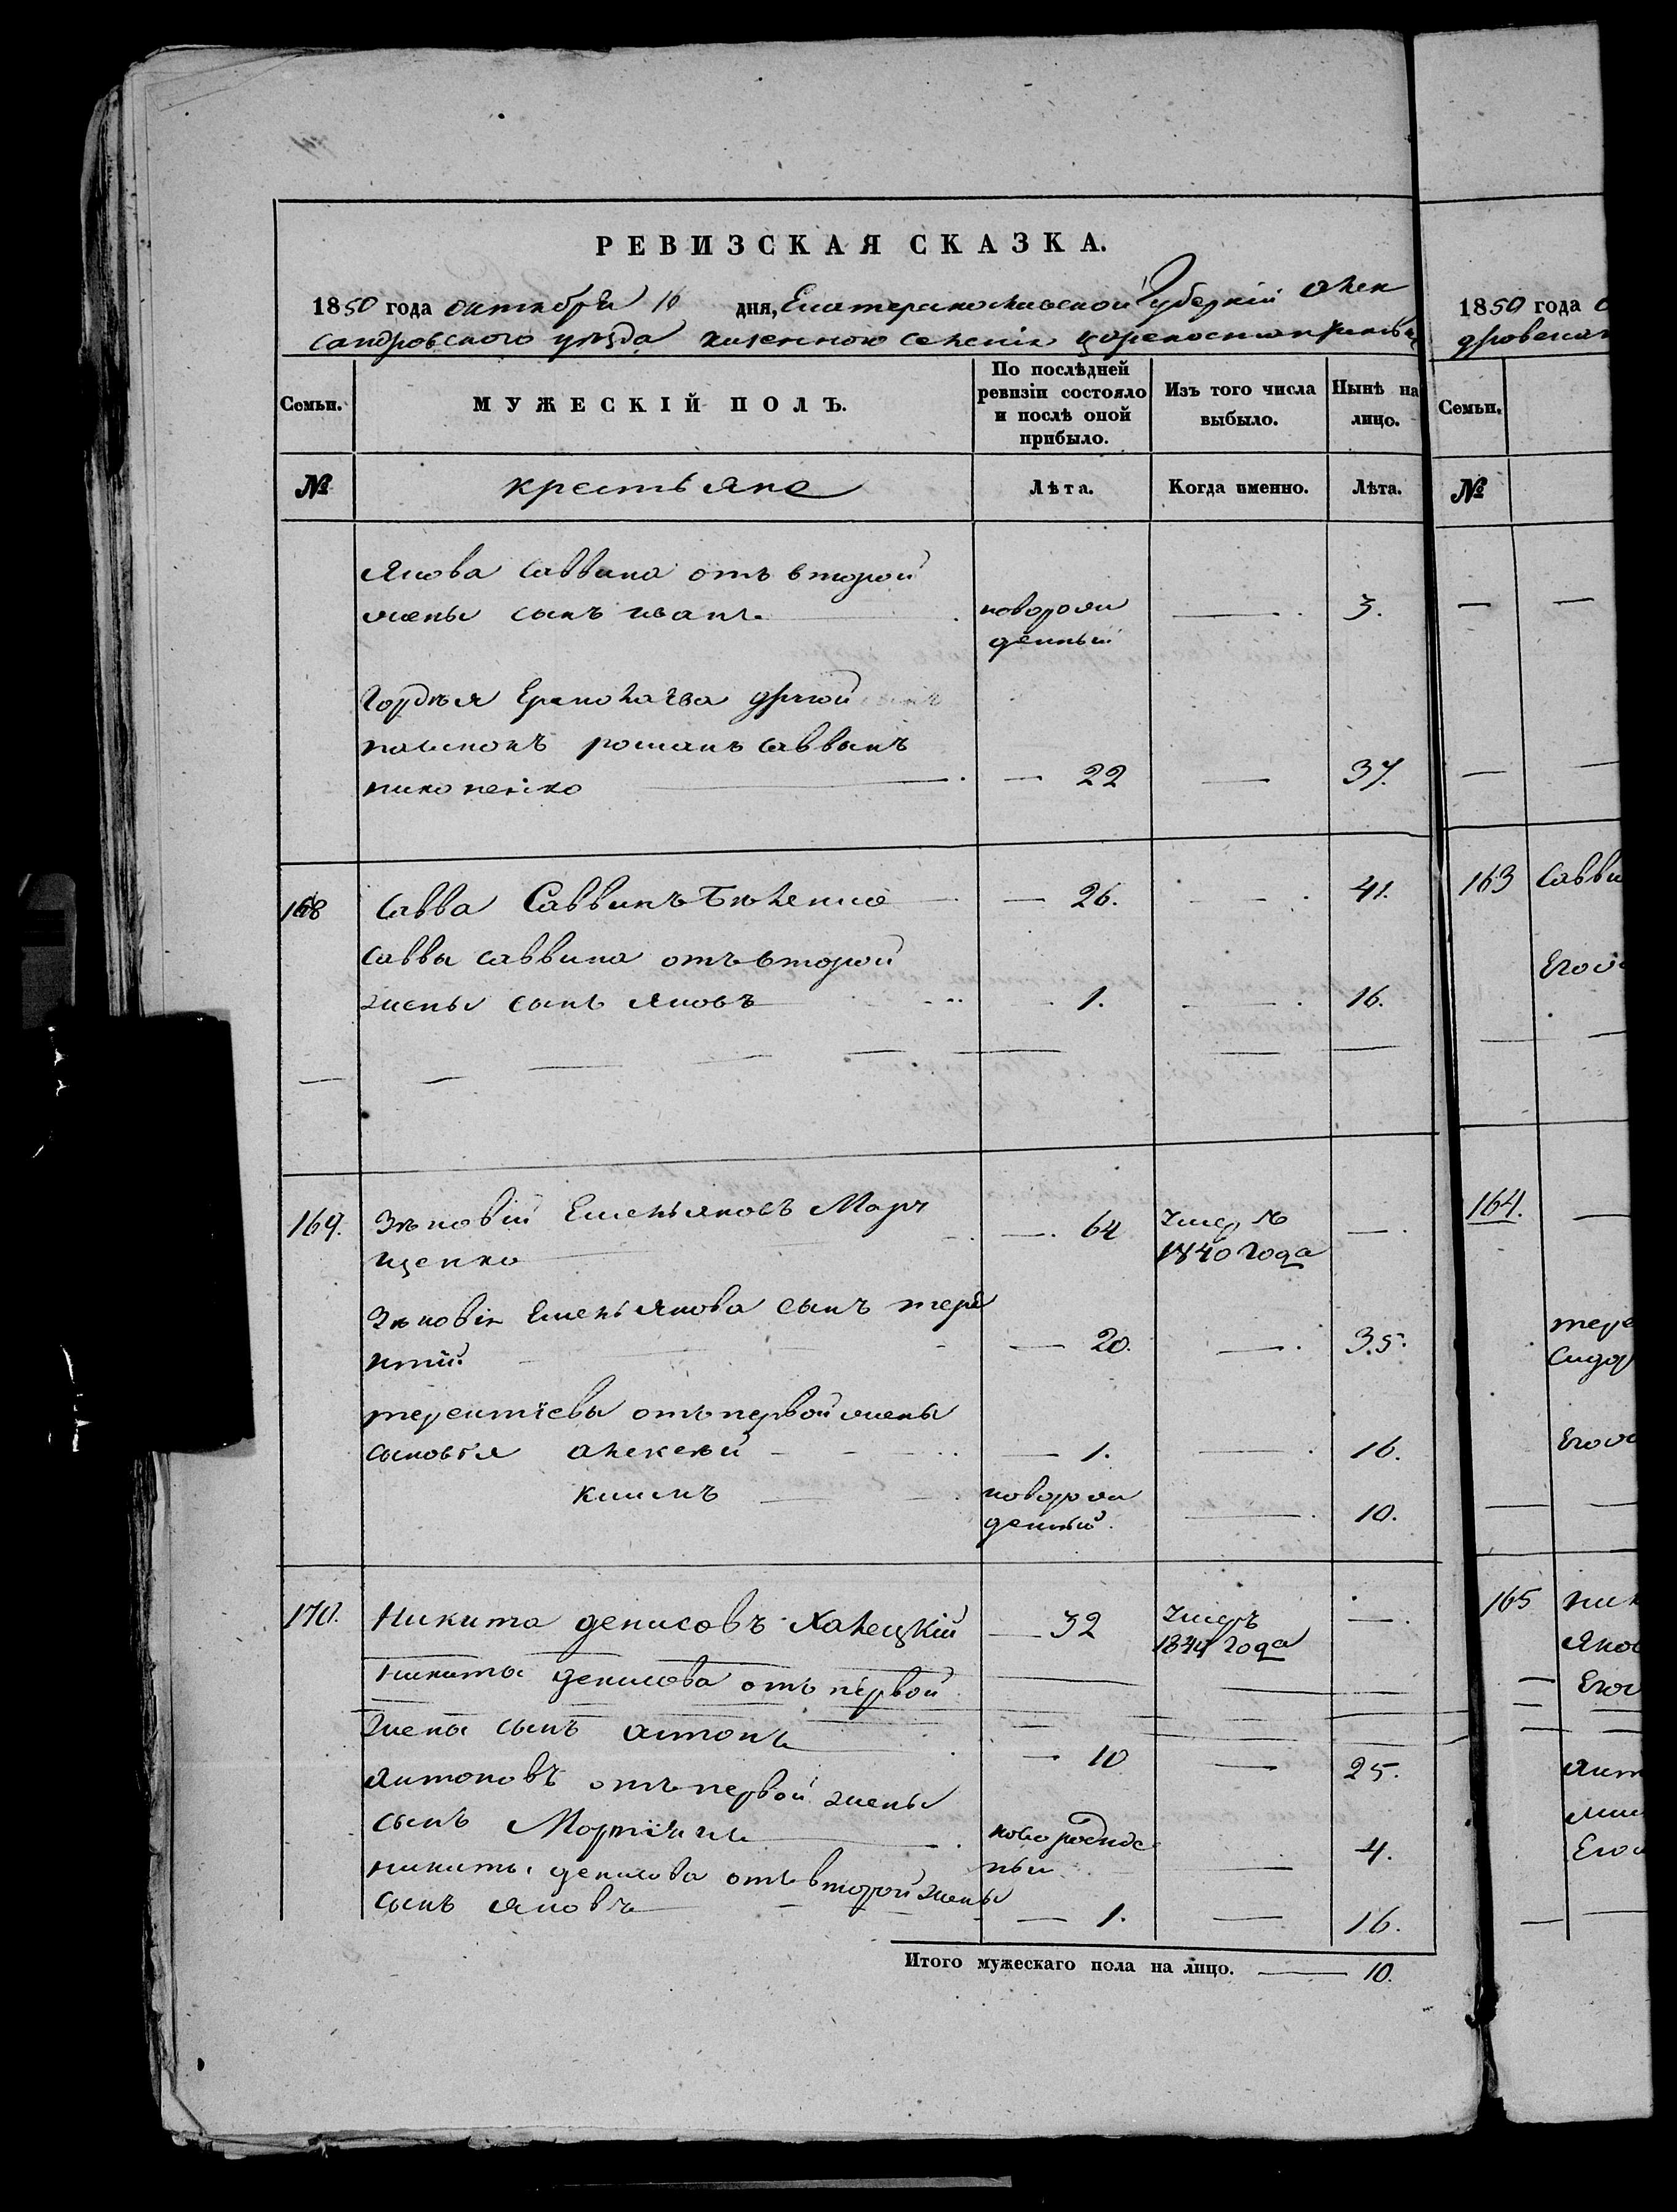 РЕВИЗСКАЯ СКАЗКА.
1850 года октября 10 дня, Екатеринославской Губерніи Алек
сандровского уѣзда казенного селенія
Семьи.
МУЖЕСКІЙ ПОЛЪ.
По послѣдней ревизіи состояло и послѣ оной прибыло.
Изъ того числа выбыло.
Нынѣ на лицо.
№
крестьяне
Лѣта.
Когда именно.
Лѣта.
Якова Саввина отъ второй
жены сынъ иванъ новорож 3.
денный
Гордѣя Ермолаева другой
романъ Саввинъ
22 37.
168 Савва Саввинъ 26. 41.
Саввы Саввина отъ второй
жены сынъ яковъ 1. 16.
169. Зѣновій Емельяновъ Мар 64 Умер
щенко 1840 года
Зѣновія Емельянова сынъ тере
нтій 20. 35.
терентіевы отъ первой жены
сыновья алексѣй 1. 16.
климъ новорож 10.
денный.
170. Никита денисовъ Халецкій 32 Умеръ
года
никиты денисова отъ первой
жены сынъ антонъ 10 25.
антоновъ отъ первой жены
сынъ 4.
никиты денисова отъ второй жены
сынъ яковъ 1. 16.
Итого мужескаго пола на лицо. 10.
1850 года
Семьи.
№
163 Савви
Егов
164.
тере
Сидор
165 ник
Яков
Его